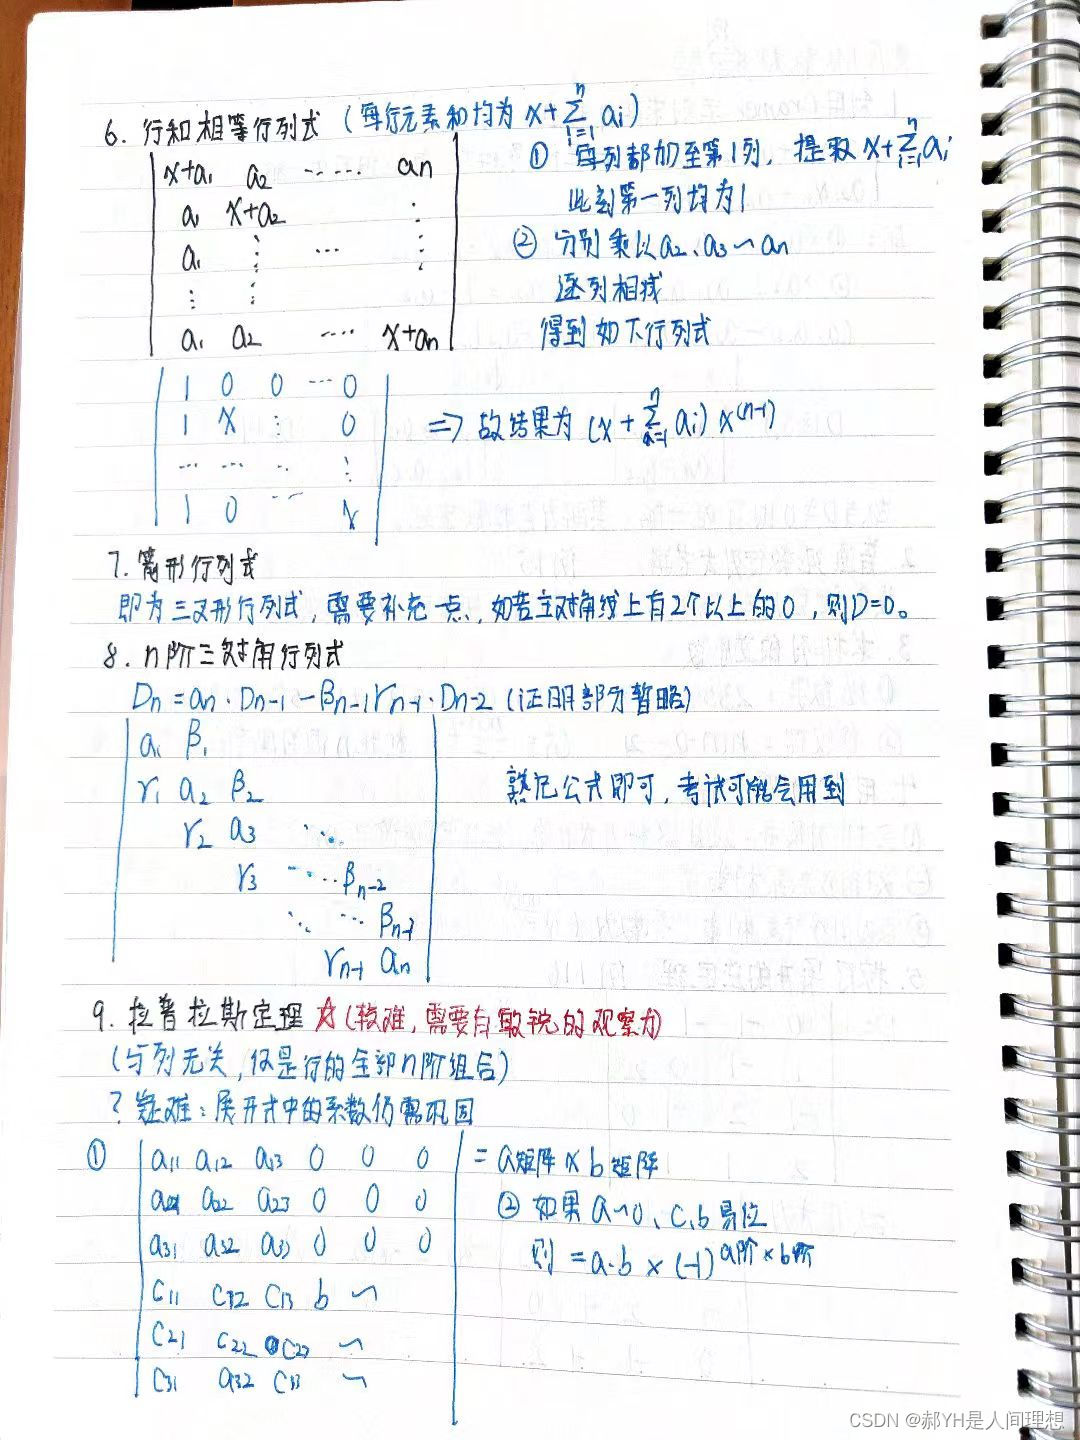 6. 行和相等行列式 (每行元素和均为 x+∑ai) n i=1
x+a1 a2 …… an
a1 x+a2 ⋮
a1 ⋮ … ⋮
⋮ ⋮
a1 a2 … x+an
① 每列都加至第1列, 提取 x+∑ai n i=1
此刻第一列均为1
② 分别乘以a2、a3~an
逐列相减
得到如下行列式
1 0 0 … 0
1 X ⋮ 0
… … ⋮
1 0 … x
=> 故结果为 (x+∑ai) x^(n-1) n i=1
7. 箭形行列式
即为三叉形行列式, 需要补充一点, 如若主对角线上有2个以上的0, 则D=0。
8. n阶三对角行列式
Dn = an · Dn-1 − βn-1 rn-1 · Dn-2 (证明部分暂略)
a1 β1
r1 a2 β2
r2 a3 ⋱
r3 … βn-2
⋱ … βn-1
rn-1 an
熟记公式即可, 考试可能会用到
9. 拉普拉斯定理 ☆(较难, 需要有敏锐的观察力)
(与列无关, 仅是行的全部n阶组合)
? 疑难: 展开式中的系数仍需巩固
① a11 a12 a13 0 0 0
a21 a22 a23 0 0 0
a31 a32 a33 0 0 0
C11 C12 C13 b ~
C21 C22 C23 ~
C31 a32 C33 ~
= a矩阵 × b矩阵
② 如果 a~0、c、b 易位
则 = a·b × (-1)^a阶×b阶
CSDN @郝YH是人间理想